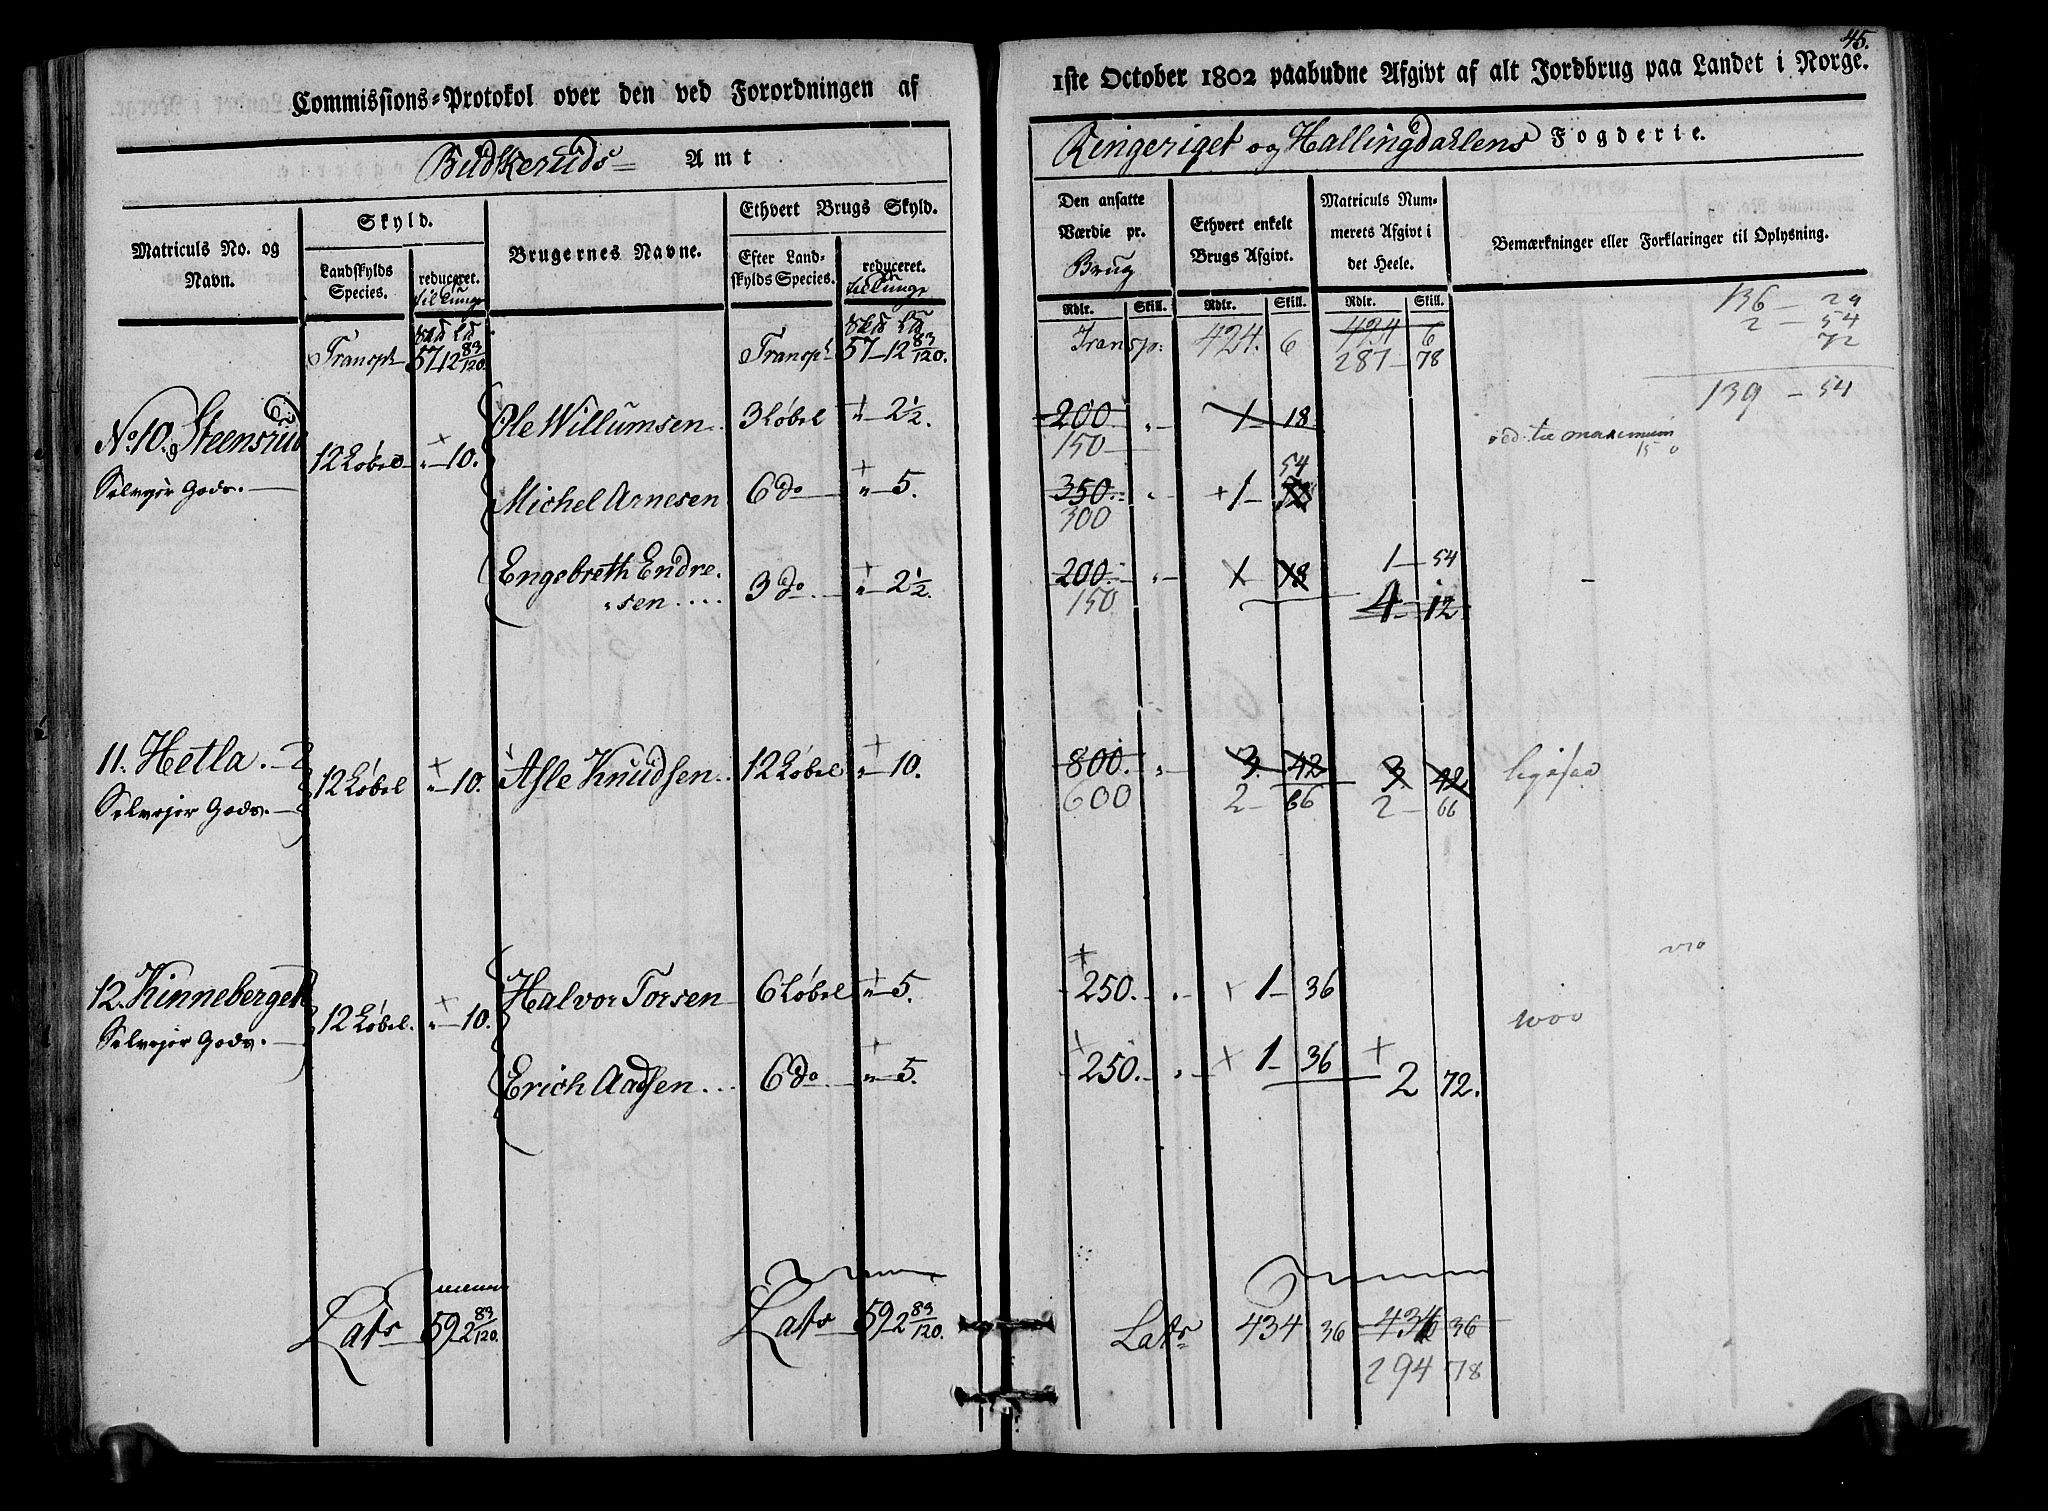 Commissions=Protokol over den ved Forordningen af
Budkeruds= Amt
Matriculs No. og Navn.
Skyld.
Landskylds Species.
reduceret.
Brugernes Navne.
Ethvert Brugs Skyld.
Efter Landskylds Species.
reduceret.
Skd Ld
Skd Ld
Transpt 57-12 83/120.
Transpt 57-12 83/120.
No. 10. Steensrud
12 Løbel - " - 10.
Selvejer Gods.
Ole Willumsen 3 Løbel " - 2 1/2.
Michel Arnesen 6 do " - 5.
Engebreth Endre=
sen .... 3 do " - 2 1/2.
11. Hetla.
12 Løbel " - 10.
Selvejer Gods.
Asle Knudsen 12 Løbel " - 10.
12. Kinneberget
12 Løbel. " - 10.
Selvejer Gods.
Halvor Torsen 6 Løbel " - 5.
Erich Aadsen 6 do " - 5.
Lats 59 2 83/120.
Lats 59 2 83/120.
45.
1ste October 1802 paabudne Afgivt af alt Jordbrug paa Landet i Norge.
Ringeriget og Hallingdahlens Fogderie.
Den ansatte Værdie pr. Brug
Ethvert enkelt Brugs Afgivt.
Matriculs Nummerets Afgivt i det Heele.
Bemærkninger eller Forklaringer til Oplysning.
Rdlr. Skill. Rdlr. Skill. Rdlr. Skill.
136 - 29
2 - 54
72
139 - 54
Transp: 424. 6 424 6
287 - 78
200 " 1 - 18
150
maximum
150
350 " + 1 - 54
300
1 - 54
200 " 1 18
150
4 - 12
800. " 3. 42 3 42
600 2 - 66 2 - 66
ligesaa
+ 250. " + 1 - 36
1000
+ 250. " + 1 - 36 + 2 72.
Lats 434 36 434 36
294 78